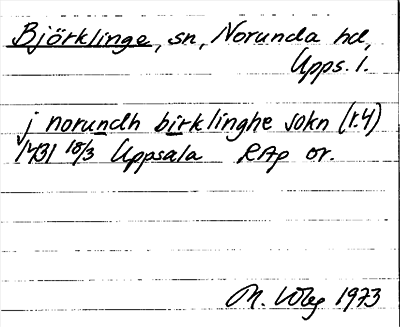 Björklinge, sn, Norunda hd,
Upps. l.
j norundh birklinghe sokn (r.4)
1431 18/3 Uppsala RAp or.
M. 1973